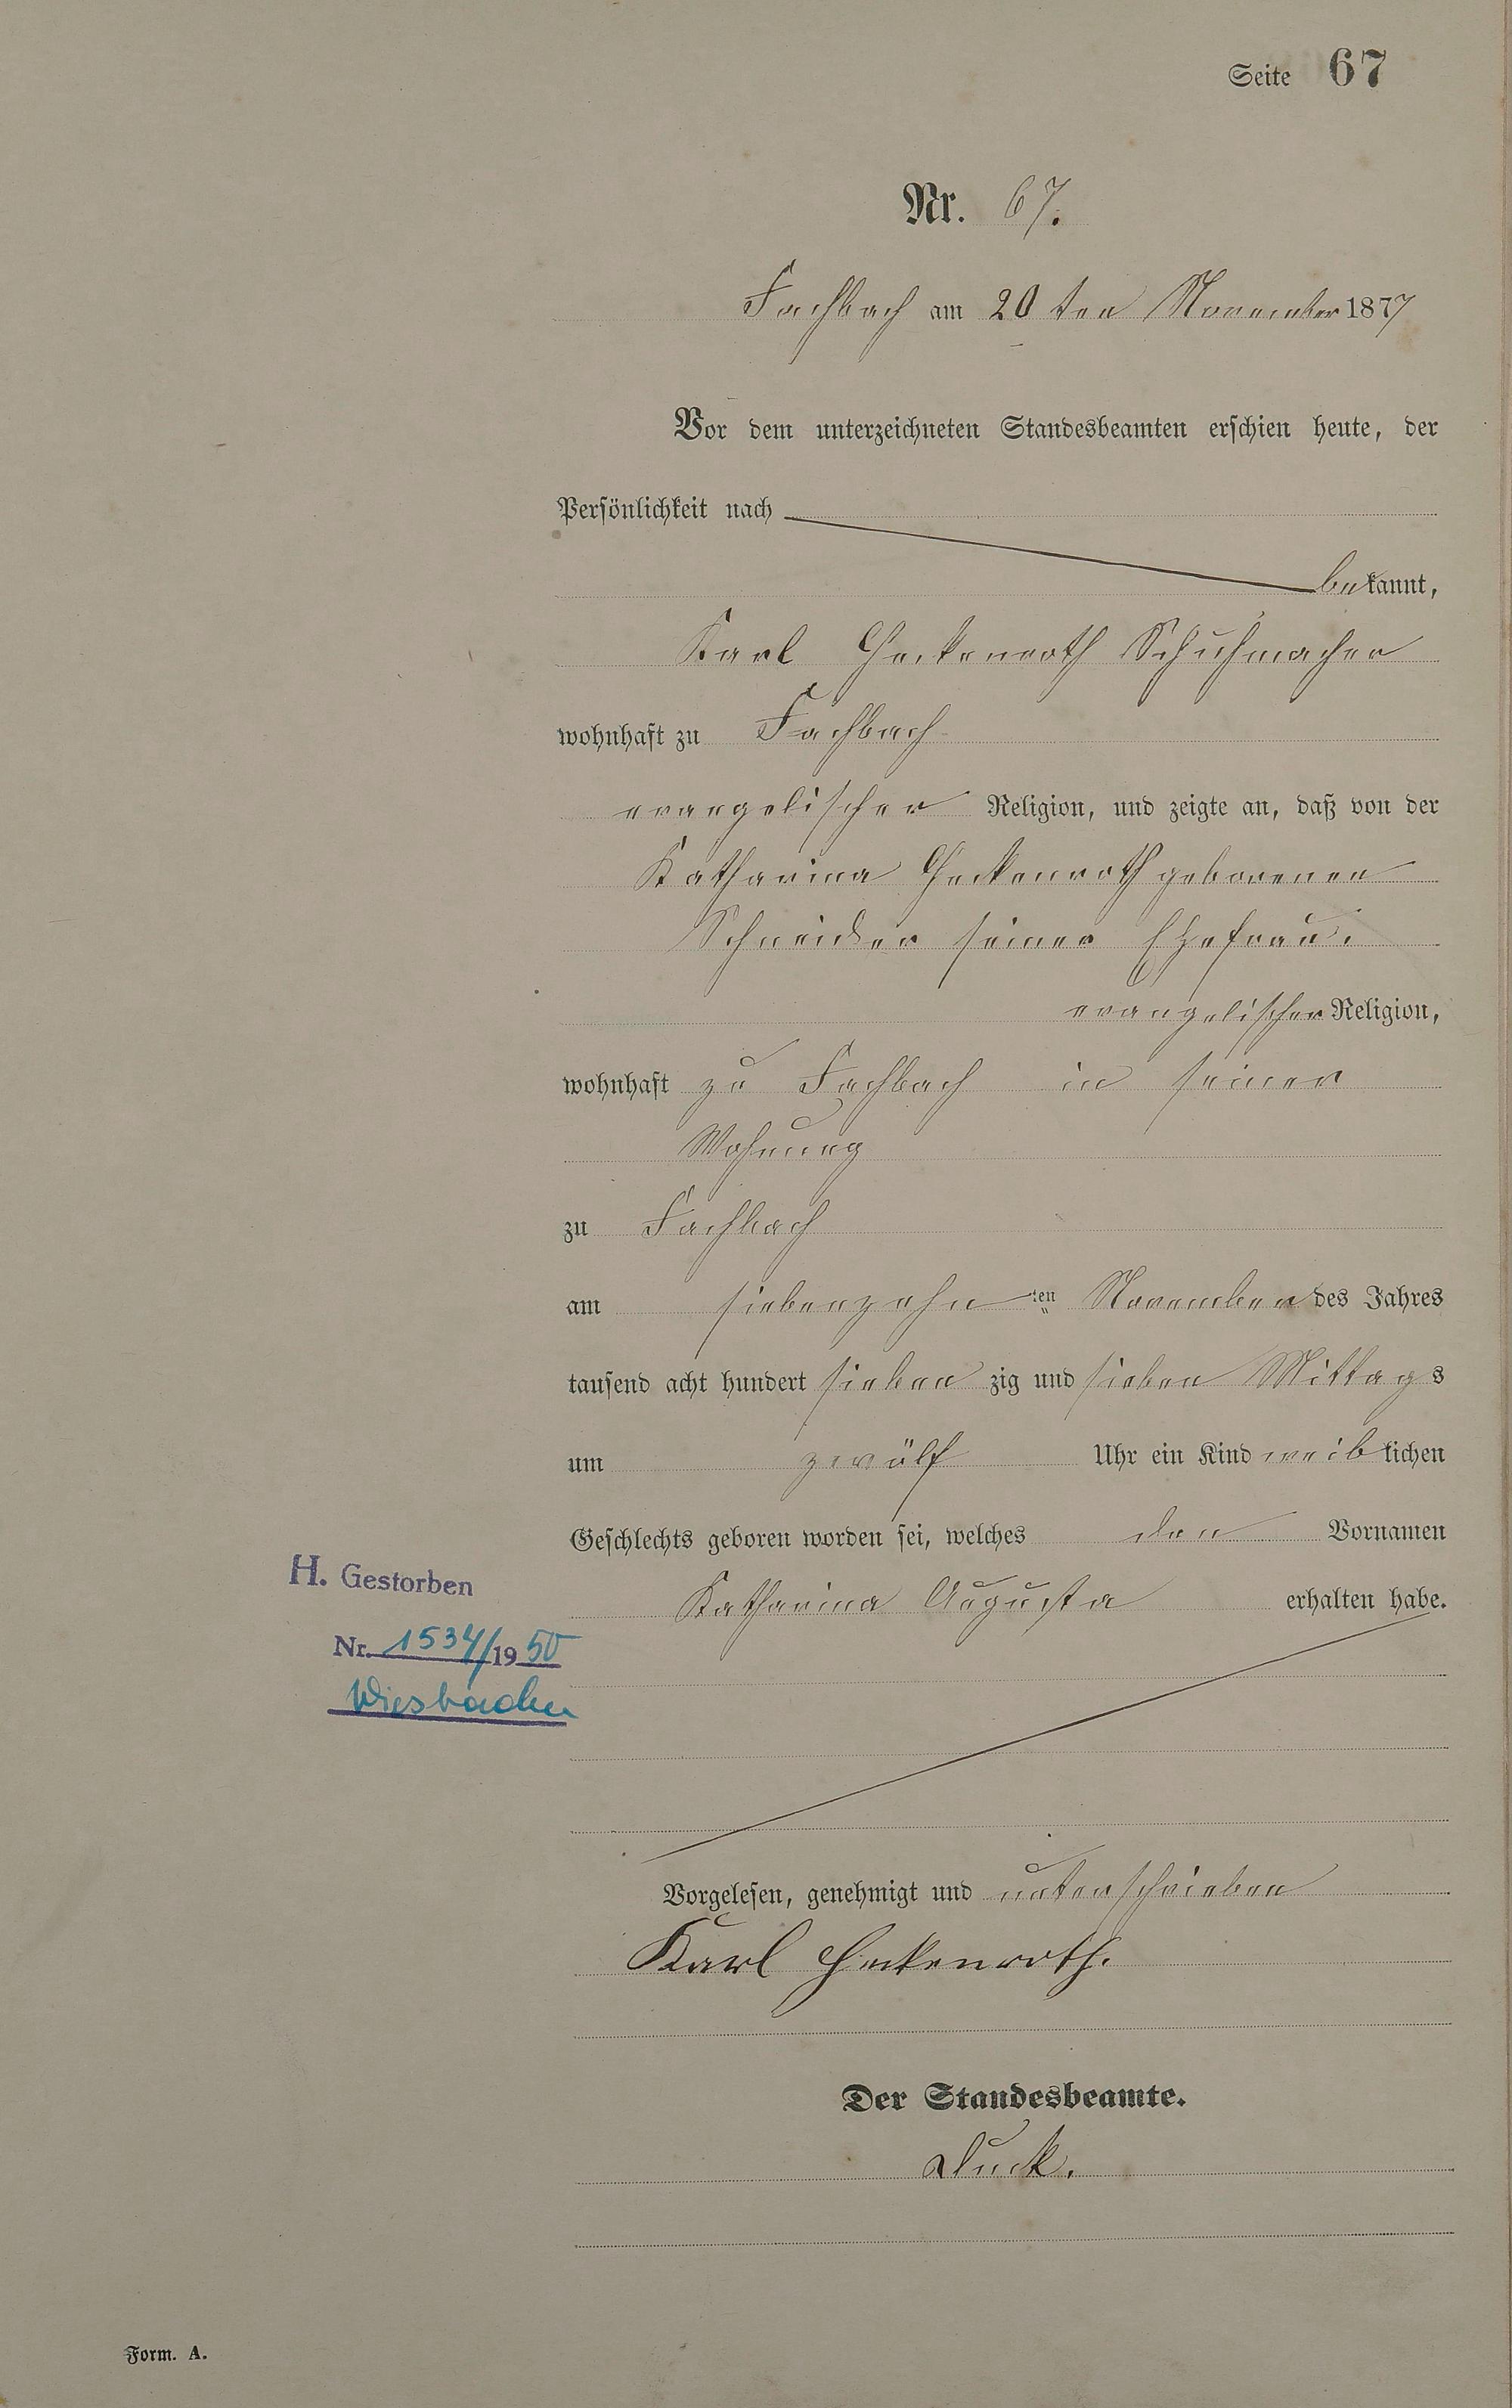 Seite 67
Nr. 67.
Fachbach am 20 ten November 1877
Vor dem unterzeichneten Standesbeamten erschien heute, der
Persönlichkeit nach
bekannt,
Karl Heckenroth Schuhmacher
wohnhaft zu Fachbach
evangelischer Religion, und zeigte an, daß von der
Katharina Heckenroth geborenen
Schneider seiner Ehefrau.
evangelischer Religion,
wohnhaft zu Fachbach in seiner
Wohnung
zu Fachbach
am siebenzehn ten November des Jahres
tausend acht hundert sieben zig und sieben Mittags
um zwölf Uhr ein Kind weiblichen
Geschlechts geboren worden sei, welches den Vornamen
Katharina Augusta erhalten habe.
H. Gestorben
Nr. 1534/1950
Wiesbaden
Vorgelesen, genehmigt und unterschrieben
Karl Heckenroth.
Der Standesbeamte.
Duck.
Form. A.